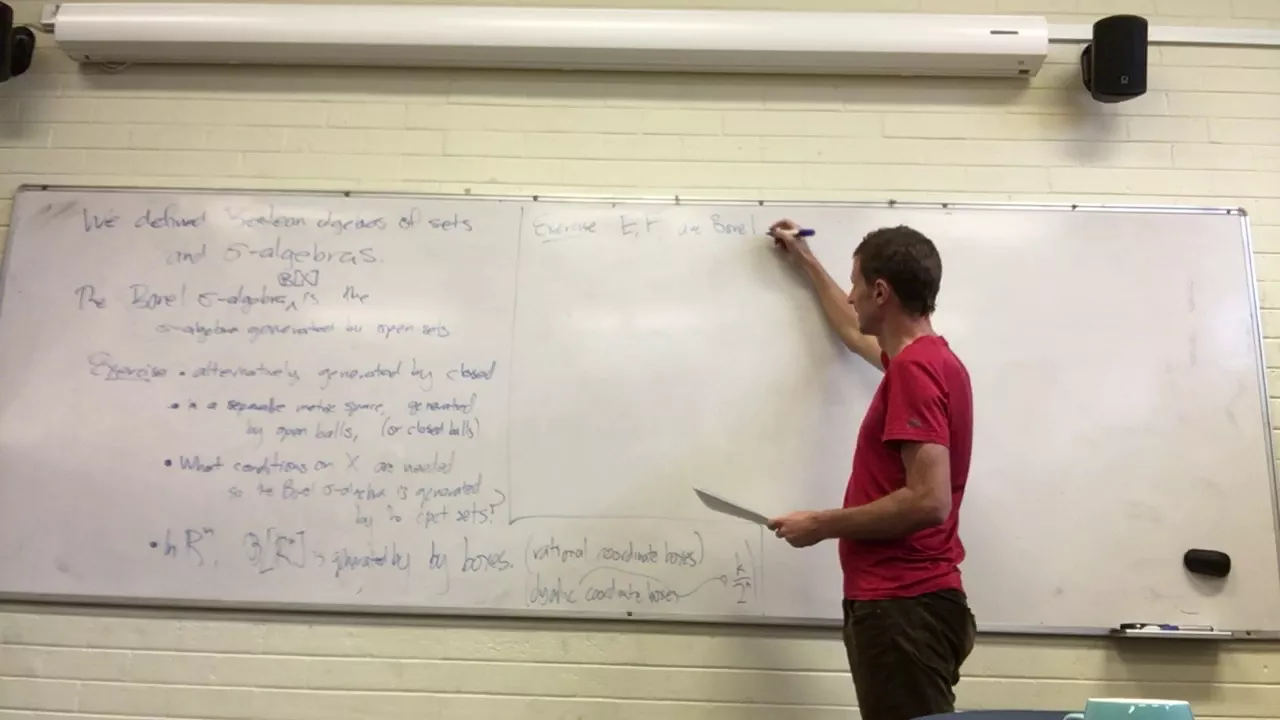 We defined Boolean algebras of sets
and σ-algebras.
B[X]
The Borel σ-algebra ^ is the
σ-algebra generated by open sets
Exercise • alternatively generated by closed
• in a separable metric space, generated
by open balls, (or closed balls)
• What conditions on X are needed
so the Borel σ-algebra is generated
by cpct sets?
• In Rⁿ, B[Rⁿ] is generated by by boxes. (rational coordinate boxes)
(dyadic coordinate boxes k/2ⁿ)
Exercise E, F are Borel